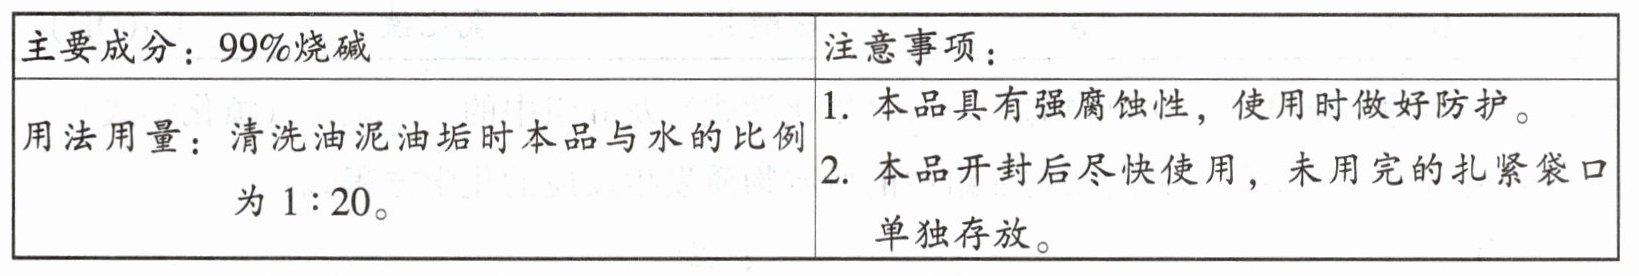 主要成分：99%烧碱
用法用量：清洗油泥油垢时本品与水的比例
为 1∶20。
注意事项：
1. 本品具有强腐蚀性，使用时做好防护。
2. 本品开封后尽快使用，未用完的扎紧袋口
单独存放。